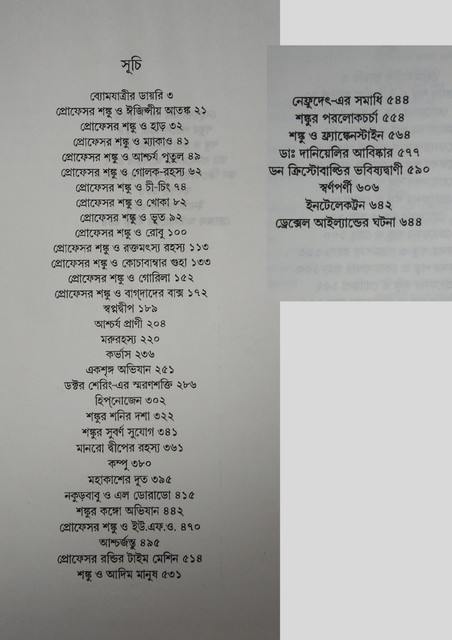 সূচি
ব্যোমযাত্রীর ডায়রি ৩
প্রোফেসর শঙ্কু ও ঈজিপ্সীয় আতঙ্ক ২১
প্রোফেসর শঙ্কু ও হাড় ৩২
প্রোফেসর শঙ্কু ও ম্যাকাও ৪১
প্রোফেসর শঙ্কু ও আশ্চর্য পুতুল ৪৯
প্রোফেসর শঙ্কু ও গোলক-রহস্য ৬২
প্রোফেসর শঙ্কু ও চী-চিং ৭৪
প্রোফেসর শঙ্কু ও খোকা ৮২
প্রোফেসর শঙ্কু ও ভূত ৯২
প্রোফেসর শঙ্কু ও রোবু ১০০
প্রোফেসর শঙ্কু ও রক্তমৎস্য রহস্য ১১৩
প্রোফেসর শঙ্কু ও কোচাবাম্বার গুহা ১৩৩
প্রোফেসর শঙ্কু ও গোরিলা ১৫২
প্রোফেসর শঙ্কু ও বাগ্‌দাদের বাক্স ১৭২
স্বপ্নদ্বীপ ১৮৯
আশ্চর্য প্রাণী ২০৪
মরুরহস্য ২২০
কর্ভাস ২৩৬
একশৃঙ্গ অভিযান ২৫১
ডক্টর শেরিং-এর স্মরণশক্তি ২৮৬
হিপ্‌নোজেন ৩০২
শঙ্কুর শনির দশা ৩২২
শঙ্কুর সুবর্ণ সুযোগ ৩৪১
মানরো দ্বীপের রহস্য ৩৬১
কম্পু ৩৮০
মহাকাশের দূত ৩৯৫
নকুড়বাবু ও এল ডোরাডো ৪১৫
শঙ্কুর কঙ্গো অভিযান ৪৪২
প্রোফেসর শঙ্কু ও ইউ.এফ.ও. ৪৭০
আশ্চর্জন্তু ৪৯৫
প্রোফেসর রন্ডির টাইম মেশিন ৫১৪
শঙ্কু ও আদিম মানুষ ৫৩১
নেফ্রুদেৎ-এর সমাধি ৫৪৪
শঙ্কুর পরলোকচর্চা ৫৫৪
শঙ্কু ও ফ্র্যাঙ্কেনস্টাইন ৫৬৪
ডাঃ দানিয়েলির আবিষ্কার ৫৭৭
ডন ক্রিস্টোবাল্ডির ভবিষ্যদ্বাণী ৫৯০
স্বর্ণপর্ণী ৬০৬
ইনটেলেকট্রন ৬৪২
ড্রেক্সেল আইল্যান্ডের ঘটনা ৬৪৪